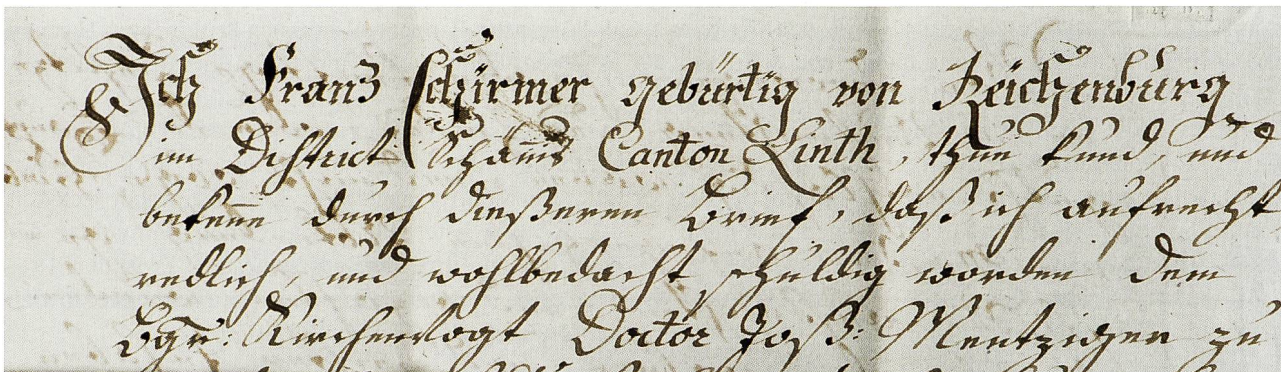 Ich Franz Schirmer gebürtig von Reichenburg
im District Schänis Canton Linth, thue kund, und
bekene durch dießeren Brief, daß ich aufrecht
redlich, und wohlbedacht schuldig worden dem
Bgr: Kirchenvogt Doctor Joß: Mentziger zu